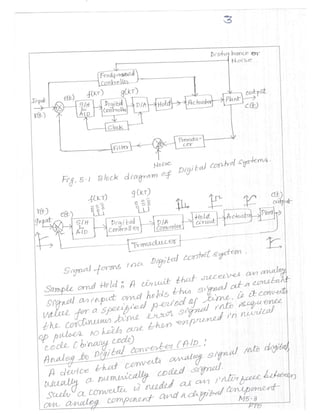 3
Disturbance or
Noise
Feedforward
controller
Input
r(t)
e(t)
f(kT)
g(kT)
S/H
A/D
Digital
controller
D/A
Hold
Actuator
Plant
output
c(t)
Clock
Filter
Transdu-
cer
Noise
Fig. 5.1 Block diagram of Digital control systems.
f(kT)
g(kT)
r(t)
Input
e(t)
S/H
A/D
Digital
controller
D/A
converter
Hold
circuit
Actuator
Plant
c(t)
output
Transducer
Signal forms in a Digital control system.
Sample and Hold: A circuit that receives an analog
signal as input and holds this signal at a constant
value for a specified period of time. ie it converts
the continuous time error signal into sequence
of pulses which are then expressed in numerical
code (binary code)
Analog to Digital converter (A/D):
A device that converts analog signal into digital,
usually a numerically coded signal.
Such a converter is needed as an interface between
an analog component and a digital component.
M5-3
PTO